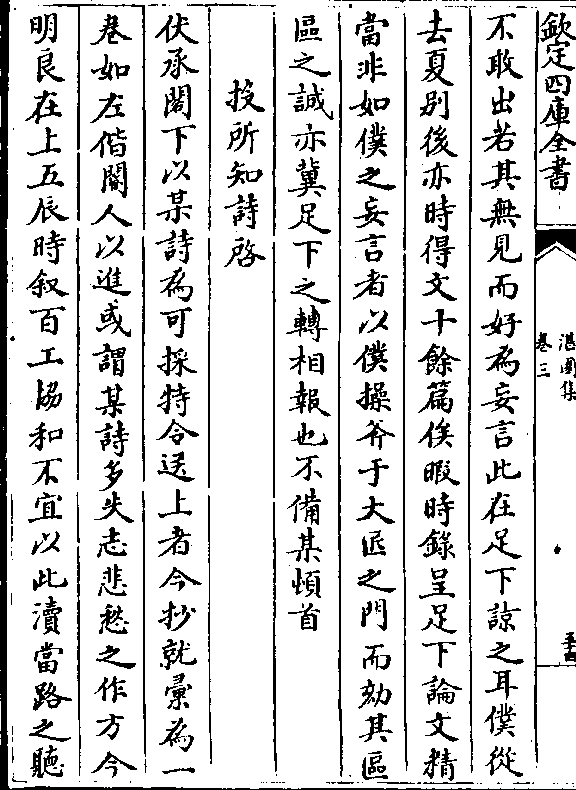 欽定四庫全書
湛園集
卷三
五十四
不敢出若其無見而好為妄言此在足下諒之耳僕從
去夏别後亦時得文十餘篇俟暇時錄呈足下論文精
當非如僕之妄言者以僕操斧于大匠之門而効其區
區之誠亦冀足下之轉相報也不備某頓首
投所知詩啓
伏承閣下以某詩為可採特令送上者今抄就彚為一
巻如左偕閽人以進或謂某詩多失志悲愁之作方今
明良在上五辰時叙百工協和不宜以此瀆當路之聽